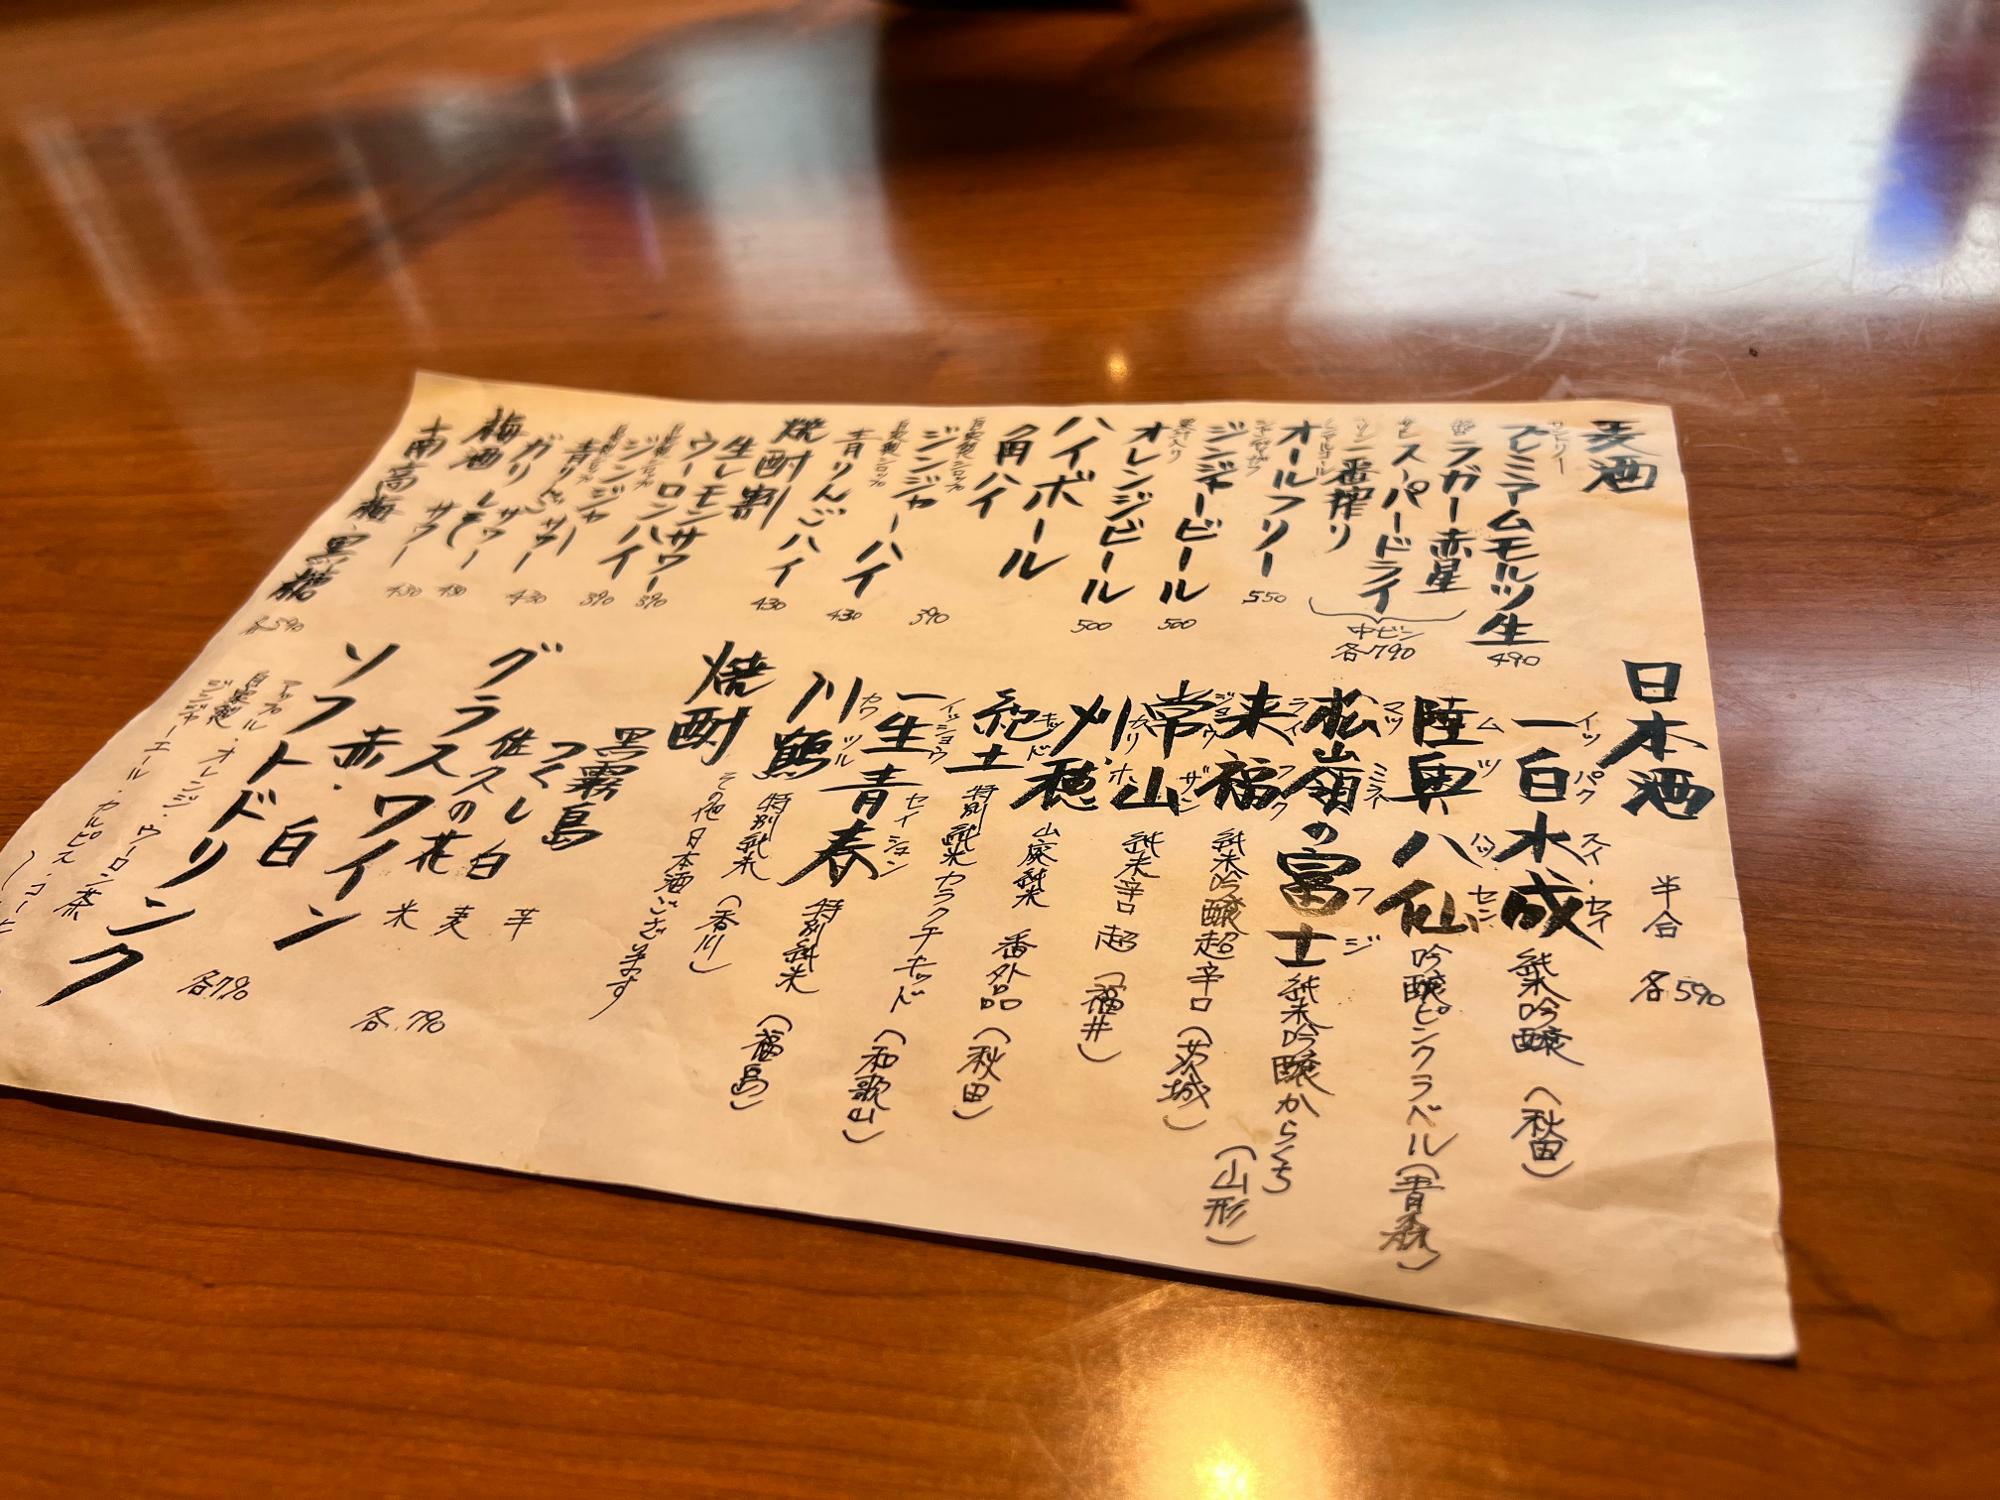 麦酒
サントリー
プレミアムモルツ生 490
ラガー赤星
スーパードライ
一番搾り
中ビン
各790
ノンアルコール
オールフリー 550
シャンディガフ
ジンジャービール 500
果汁入り
オレンジビール 500
ハイボール
角ハイ
自家製シロップ
ジンジャーハイ 390
自家製シロップ
青りんごハイ 430
焼酎割 430
生レモンサワー 390
ウーロンハイ 390
自家製シロップ
ジンジャーサワー 430
青りんごサワー 430
ガリサワー 430
梅酒
南高梅・黒糖 各590
日本酒 半合 各590
一白水成 純米吟醸 (秋田)
イッパクスイセイ
陸奥八仙 吟醸ピンクラベル (青森)
ムツハッセン
松嶺の富士 純米吟醸からくち (山形)
マツミネフジ
来福 純米吟醸超辛口 (茨城)
ライフク
常山 純米辛口 超 (福井)
ジョウザン
刈穂 山廃純米 番外品 (秋田)
カリホ
紀土 特別純米カラクチキッド (和歌山)
キッド
一生青春 特別純米 (福島)
イッショウセイシュン
川鶴 特別純米 (香川)
カワツル
その他日本酒ございます
焼酎
黒霧島 芋
つくし白 麦
佐スの花 米
各790
グラスワイン
赤・白 各790
ソフトドリンク
アップル・オレンジ・ウーロン茶
自家製
ジンジャーエール・カルピス・コーラ